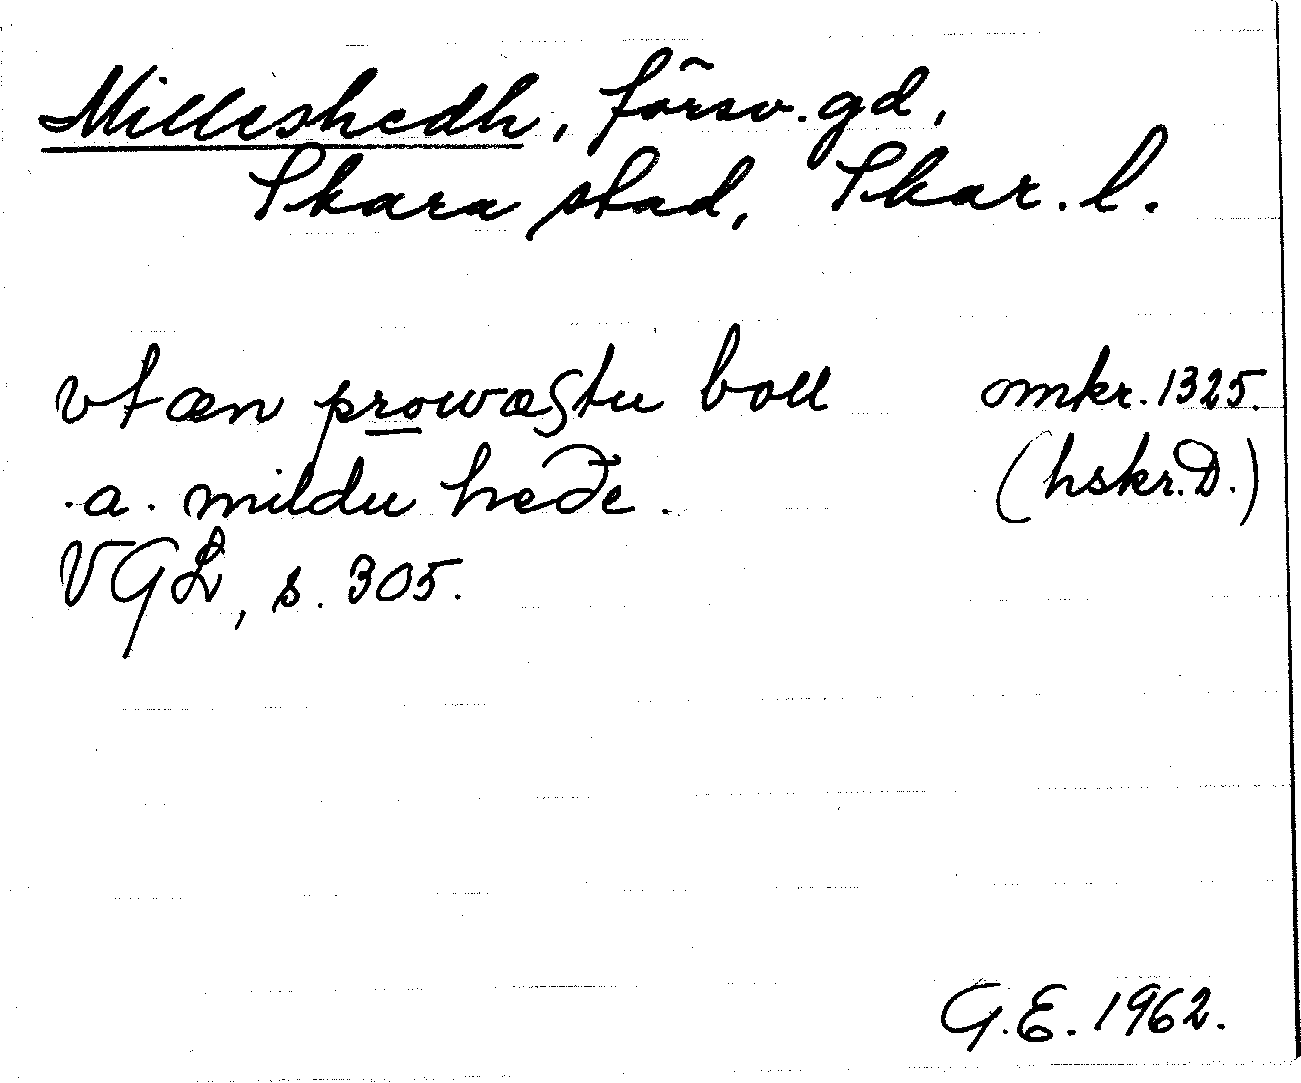 Milleshedh, försv. gd,
Skara stad, Skar. l.
vtæn prowæstu boll omkr. 1325.
.a. mildu heðe. (hskr. D.)
VGL, s. 305.
G.E. 1962.